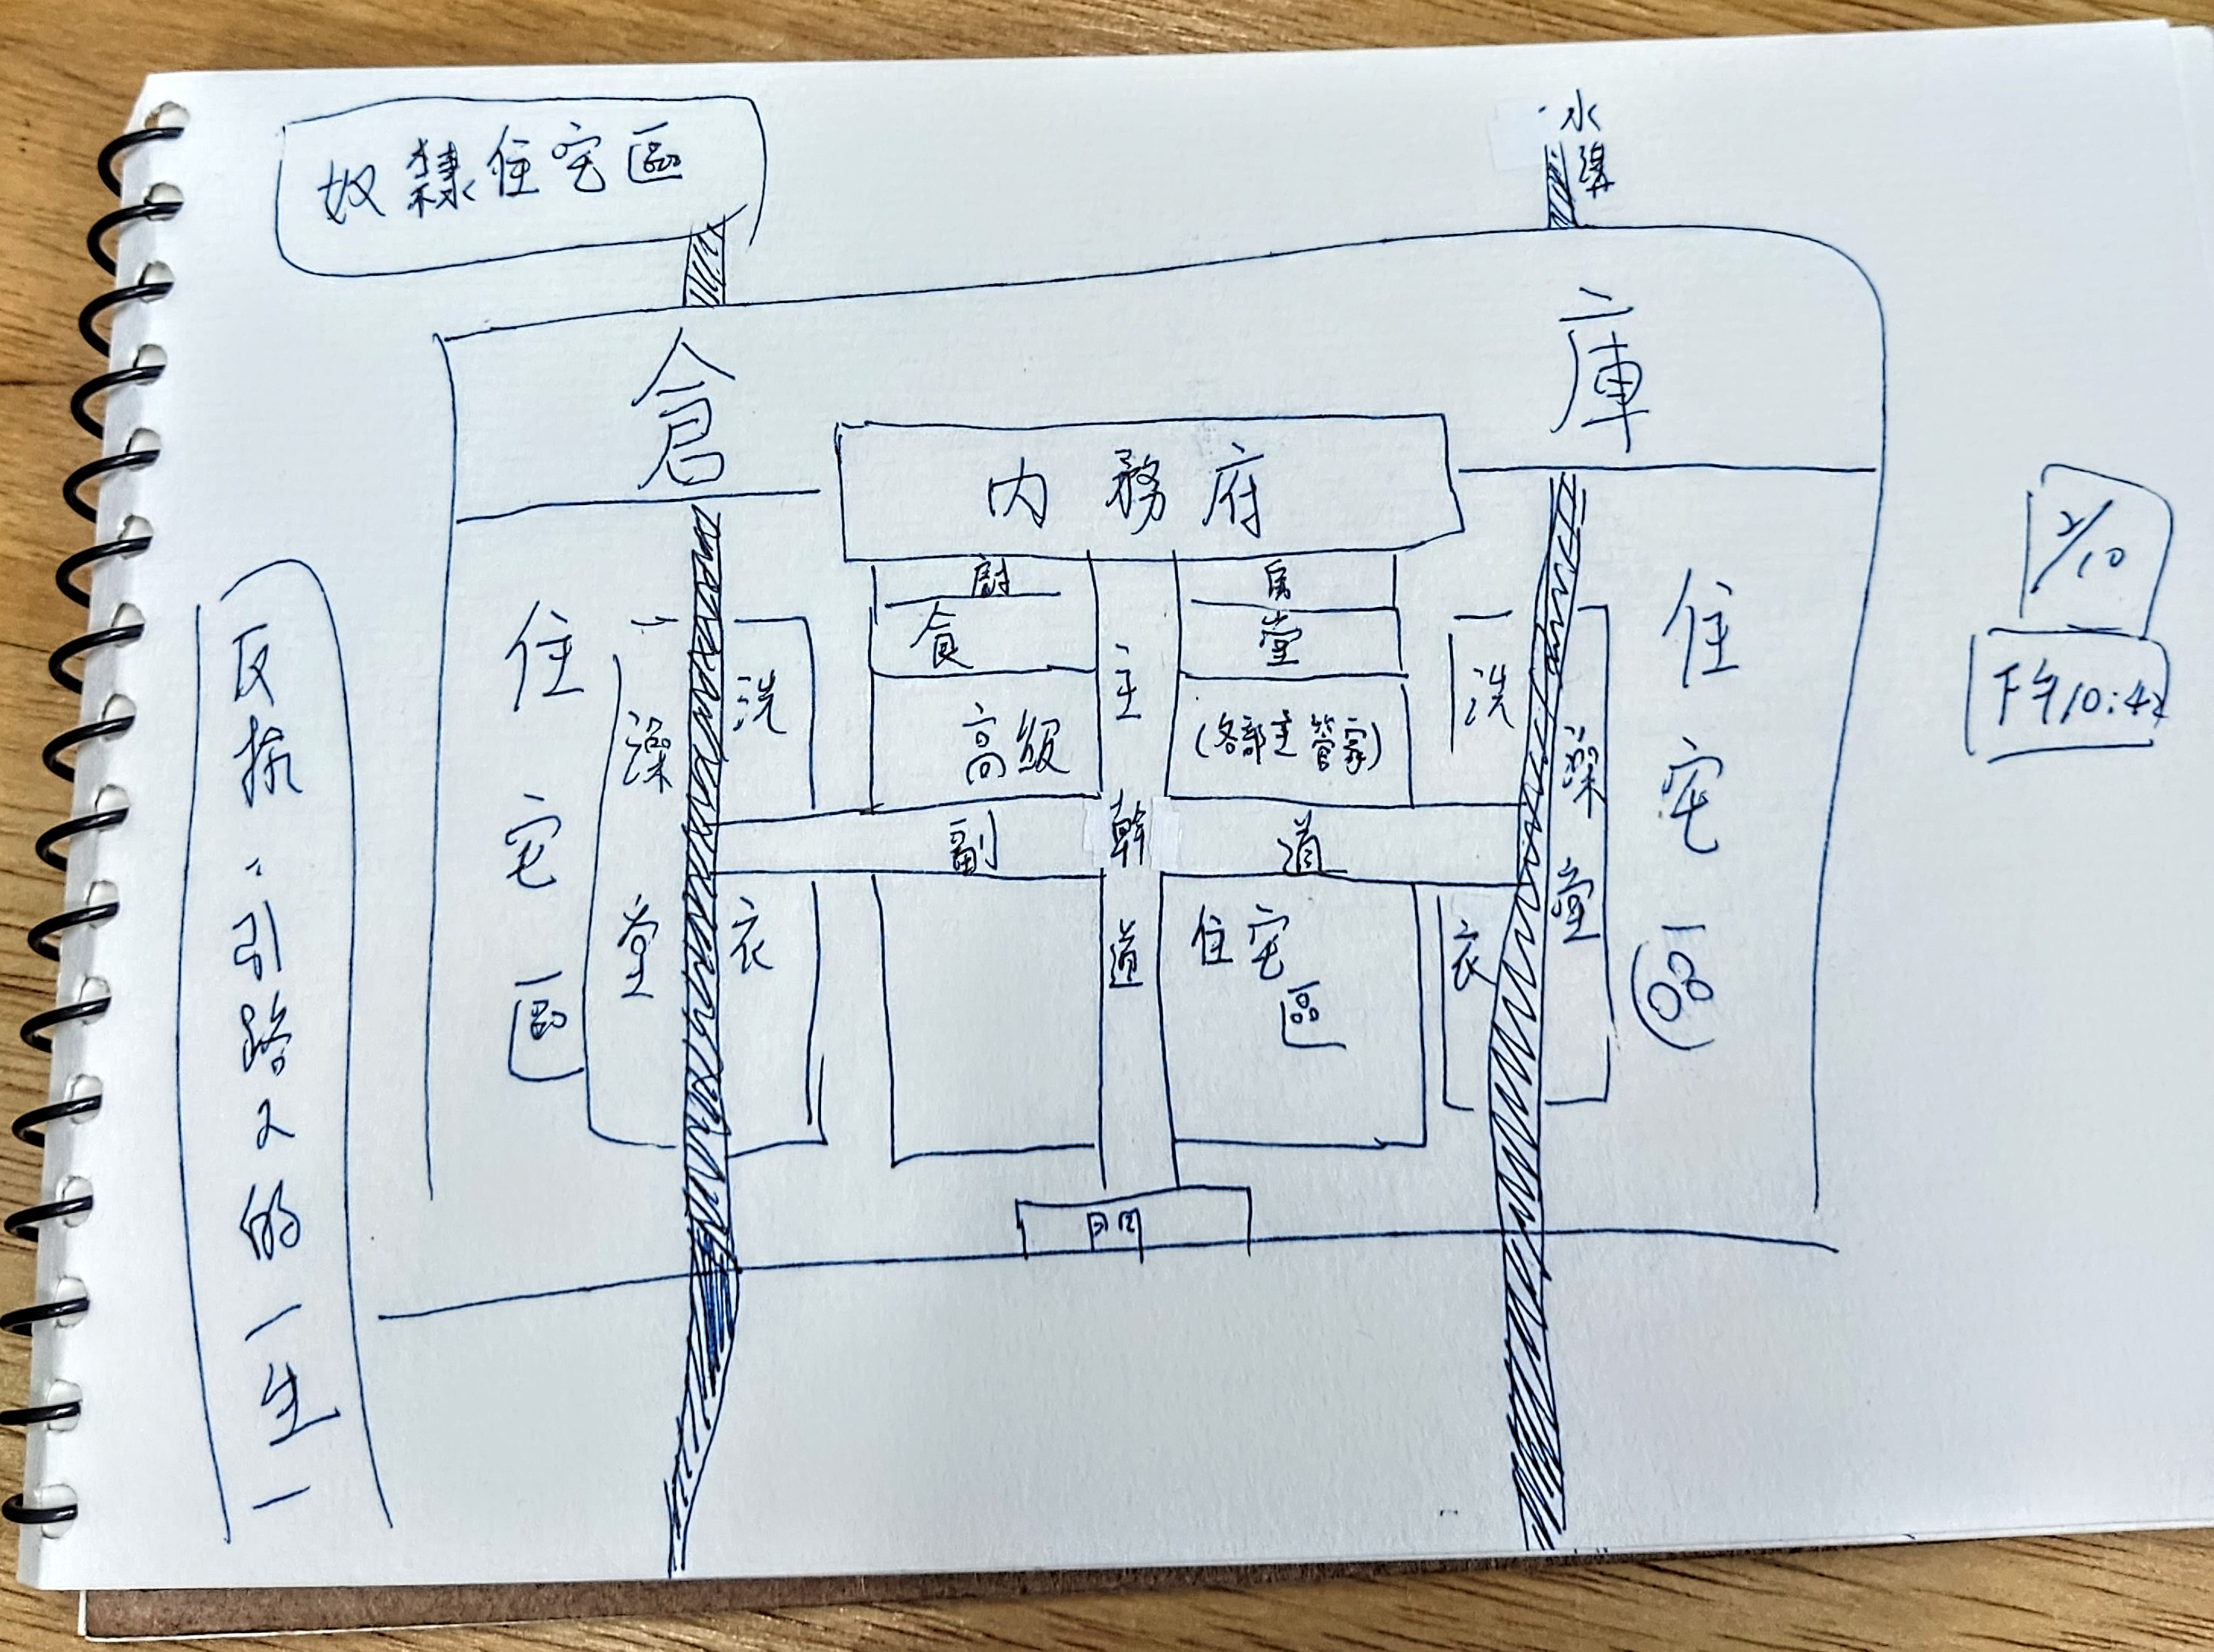 奴隸住宅區
水溝
倉庫
內務府
廚房
食堂
高級
(各部主管家)
住宅區
主幹道
副幹道
住宅區
澡堂
洗衣
洗衣
澡堂
住宅區
門
2/10
下午10:42
引路人的一生